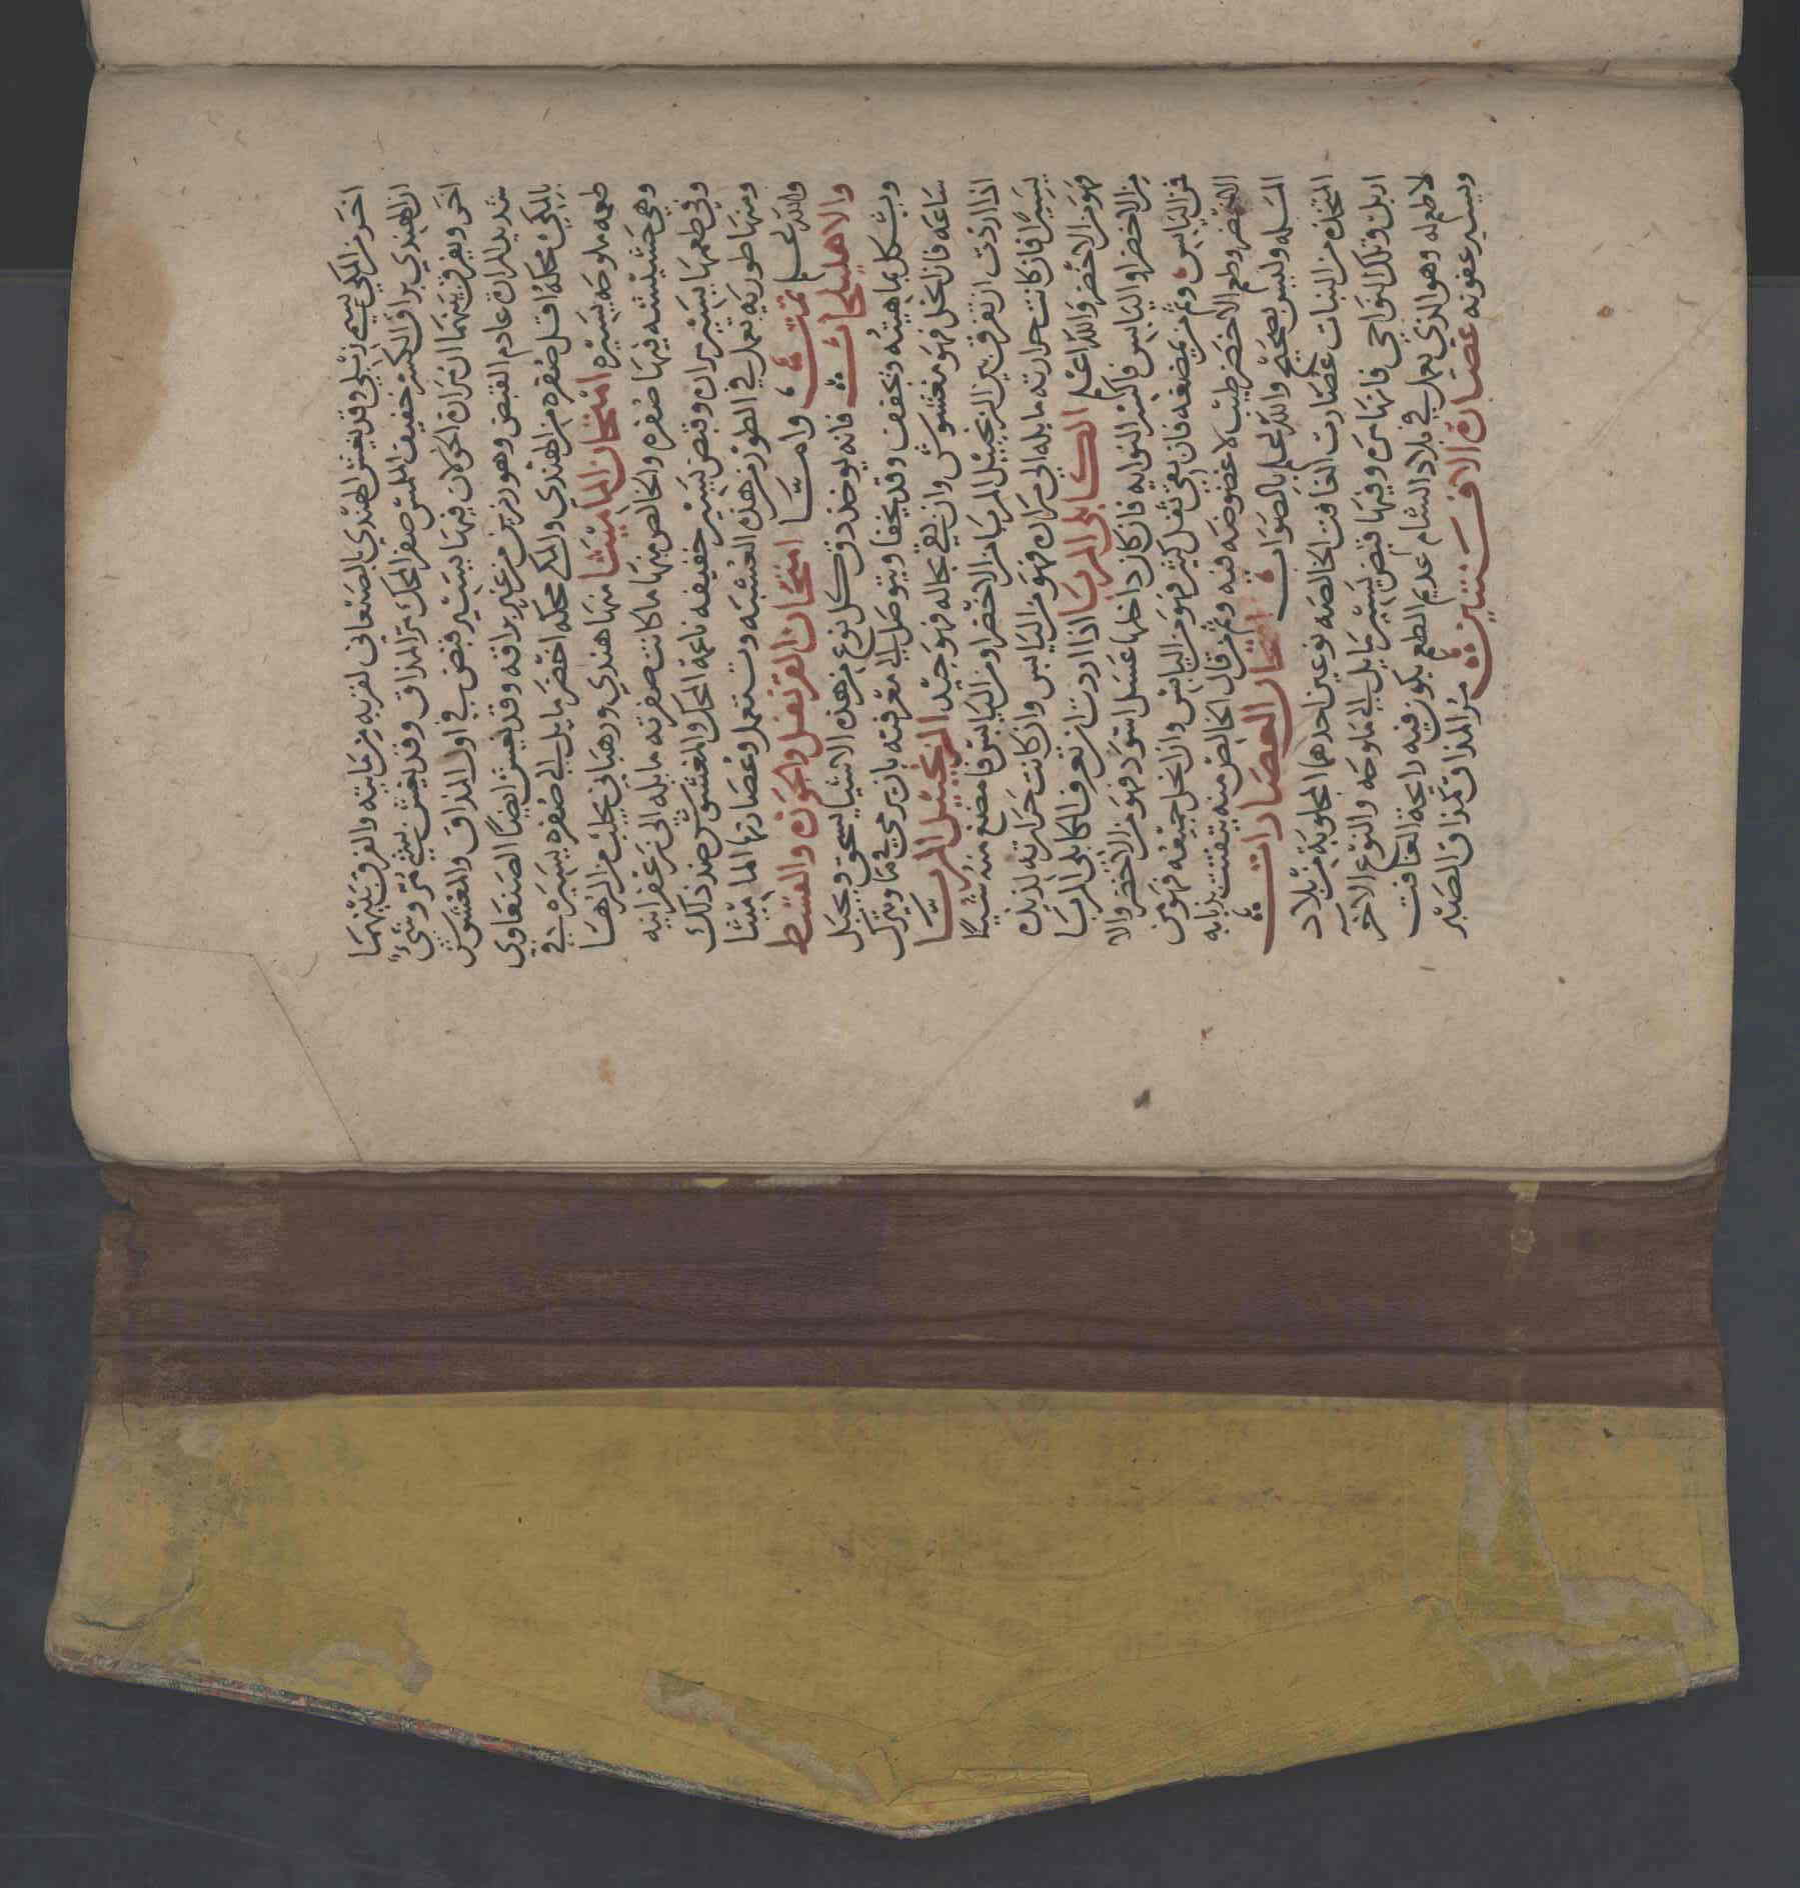 اخر من المكي يسمى زبلي وقد يغش الهندي بالصنعاني لقربه من مايته والفرق بينهما
ان الهندي براق الكسر خفيف الملمس صفر المحك مر المذاق وقد يغش بشي مر وشي
اخر ويفرق بينهما ان مران الخولان فيها يسير قبض في اول المذاق والمغشوش
شديد المرارة عادم القبض وهو رزين غير براقه وقد يغش ايضا الصنعاوي
بالمكي محكه اقل صفره من الهندي والمكي محكه اخضر مايل الى صفره يسيره في
طعمه ملوحه يسيره امتحان الماميثا منها هندي ورهباني يجلب من الرها
وهي حشيشه فيها صفره والخالص منها ما كانت صفرته مايله الى زعفرانيه
وفي طعمها يسير مران وقبض يسير خفيفه ناعمة المحك والمغشوش ضد ذلك
ومنها طوريه تعمل في الطور من هذه العشبه وتستعمل وعصارتها الماميثا
والله اعلم تمت وامتا امتحان القرنفل والجوزه والقسط
والاهليلجات فانه يوخذ دق كل نوع من هذه الاشيا يسحق ويجبل
ويشكل بماهيته ويجفف وقد يخفا ويتوصل الى معرفته بان يرمي في ما ويترك
ساعه فان انحل فهو مغشوش وان بقي بحاله فهو جيد الزنجبيل المربا
اذا اردت ان تفرق بين الزنجبيل المربا من الاخضر او من اليابس فامضغ منه شيا
يسيرا فان كانت حرارته مايله الى مران فهو من اليابس وان كانت حرارته لذيذه
فهو من الاخضر والله اعلم الكابلي المربا اذا اردت ان تعرف الكابلي المربا
من الاخضر او اليابس فاكسر النوايه فان كان داخلها عسل اسود فهو من الاخضر والا
فمن اليابس وثم من يمضغه فان بقي ثفل كثير فهو من اليابس وان انحل جميعه فهو من
الاخضر وطعم الاخضر طيب لا عفوصه فيه وثم من قال الخالص منه يتفتت بذبابه
المسله وليس بصحيح والله اعلم بالصواب امتحان العصارات
المتخذه من النبات عصارت الغافت الخالصه نوعين احدهما المجلوبة من بلاد
اربل وتلك النواحي فانها مره وفيها قبض يسير مايل الى ملوحه والنوع الاخر
لا طعم له وهو الذي يعمل في بلاد الشام عديم الطعم يكون فيه رايحة الغافت
ويسير عفونه عصارة الافسنتين مر المذاق كمذاق الصبر